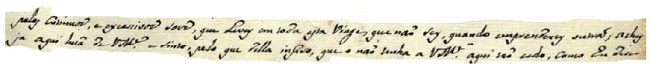 pelos caminhos, e excessivos soes, que levey em toda esta Viaje, que não sey, quando emprenderey outra; achey
ja aqui huã de VM. e sinto, pelo que della infiro, que o não tenha a VM. aqui tão cedo, como Eu